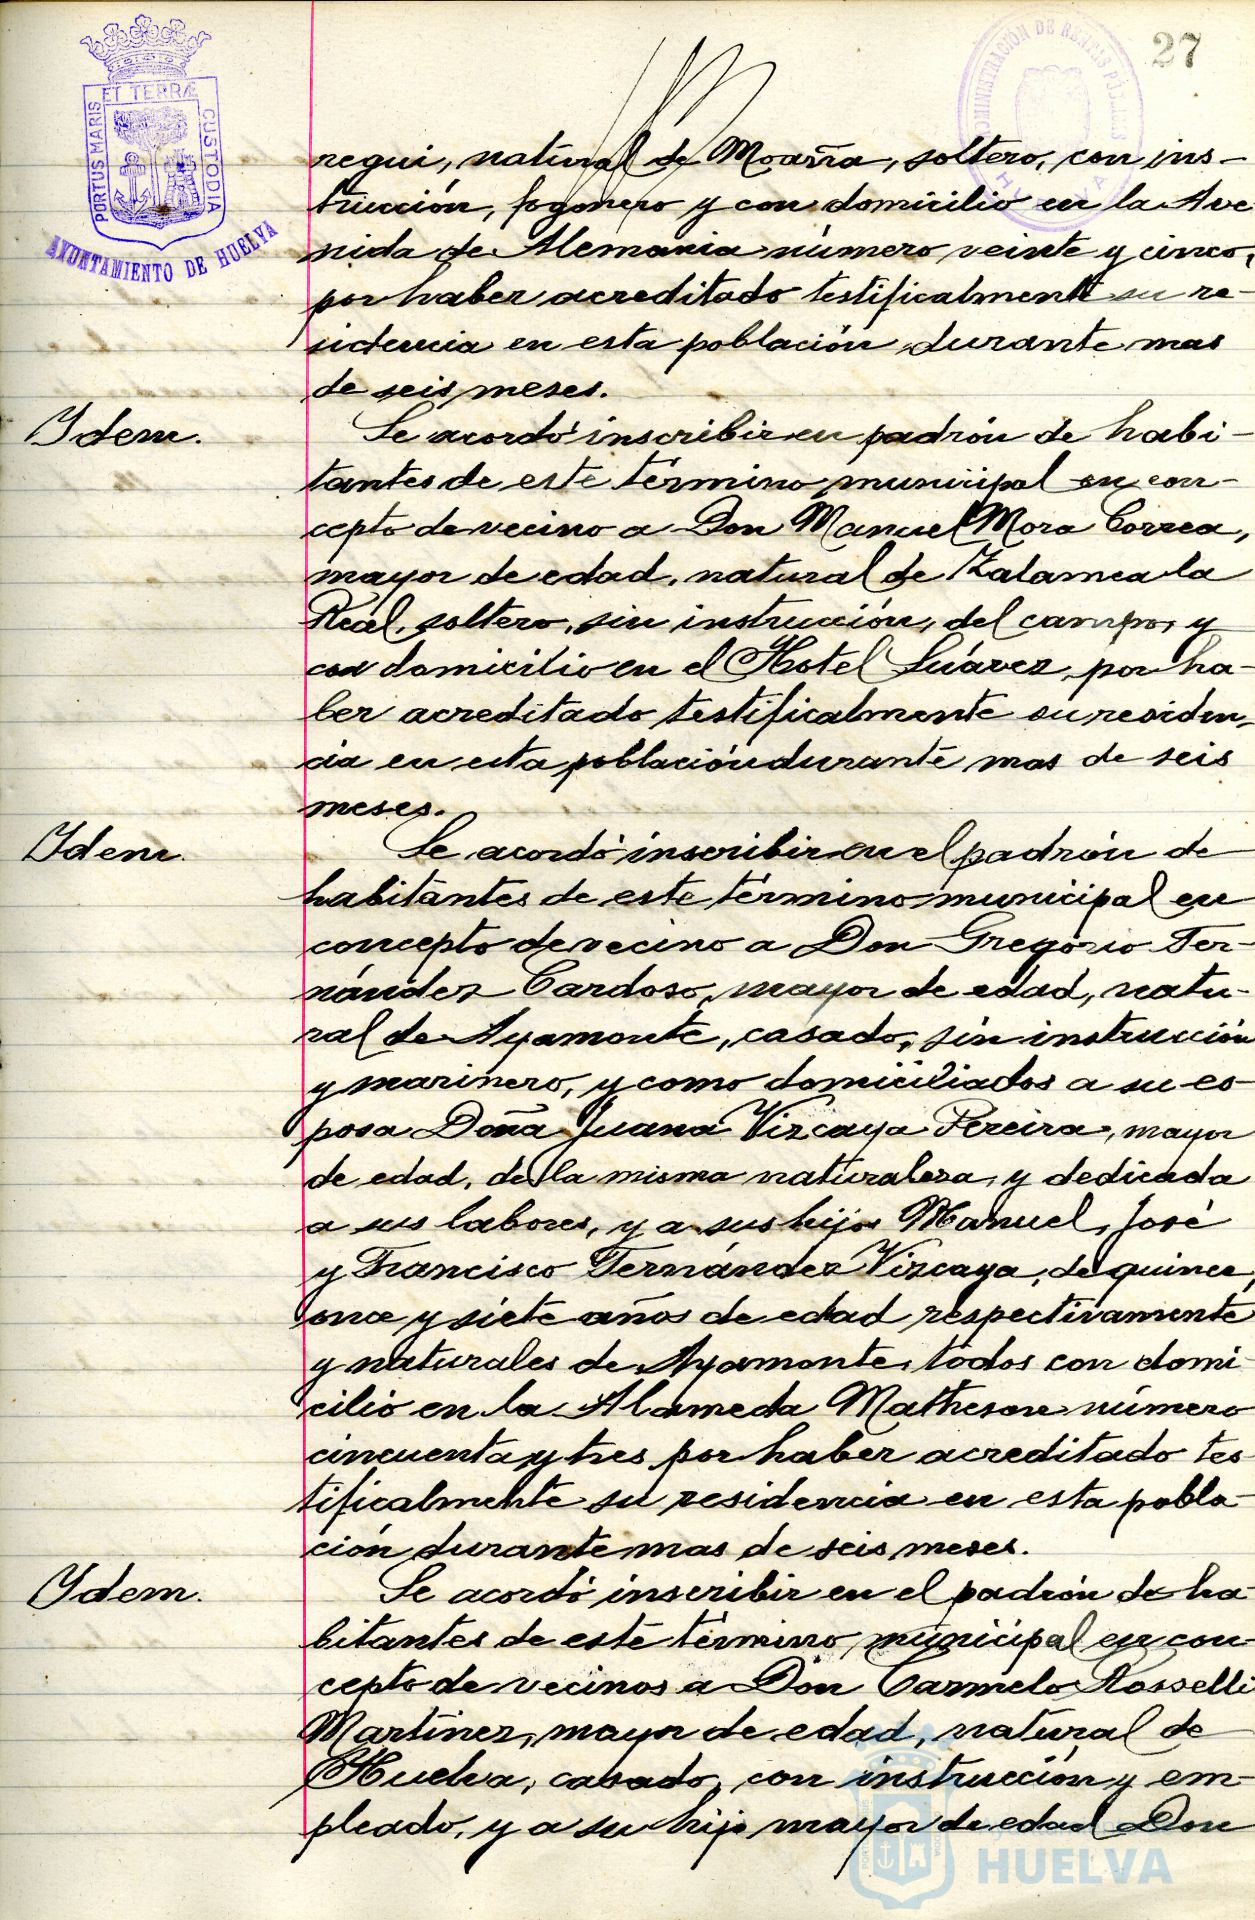 27
PORTUS MARIS ET TERRÆ CUSTODIA
AYUNTAMIENTO DE HUELVA
ADMINISTRACIÓN DE RENTAS PÚBLICAS
HUELVA
negui, natural de Moaña, soltero, con ins-
trucción, fogonero y con domicilio en la Ave
nida de Alemania número veinte y cinco,
por haber acreditado testificalmente su re-
sidencia en esta población durante mas
de seis meses.
Idem.
Se acordó inscribir en padrón de habi-
tantes de este término municipal en con-
cepto de vecino a Don Manuel Mora Correa,
mayor de edad, natural de Zalamea la
Real, soltero, sin instrucción, del campo, y
con domicilio en el Hotel Suárez, por ha-
ber acreditado testificalmente su residen-
cia en esta población durante mas de seis
meses.
Idem.
Se acordó inscribir en el padrón de
habitantes de este término municipal en
concepto de vecino a Don Gregorio Fer-
nández Cardoso, mayor de edad, natu-
ral de Ayamonte, casado, sin instrucción
y marinero, y como domiciliados a su es-
posa Doña Juana Vizcaya Pereira, mayor
de edad, de la misma naturaleza, y dedicada
a sus labores, y a sus hijos Manuel, José
y Francisco Fernández Vizcaya, de quince,
once y siete años de edad respectivamente
y naturales de Ayamonte, todos con domi-
cilio en la Alameda Matheson número
cincuenta y tres por haber acreditado tes-
tificalmente su residencia en esta pobla-
ción durante mas de seis meses.
Idem.
Se acordó inscribir en el padrón de ha-
bitantes de este término municipal en con-
cepto de vecinos a Don Carmelo Rosselli
Martinez, mayor de edad, natural de
Huelva, casado, con instrucción y em-
pleado, y a su hijo mayor de edad Don
HUELVA